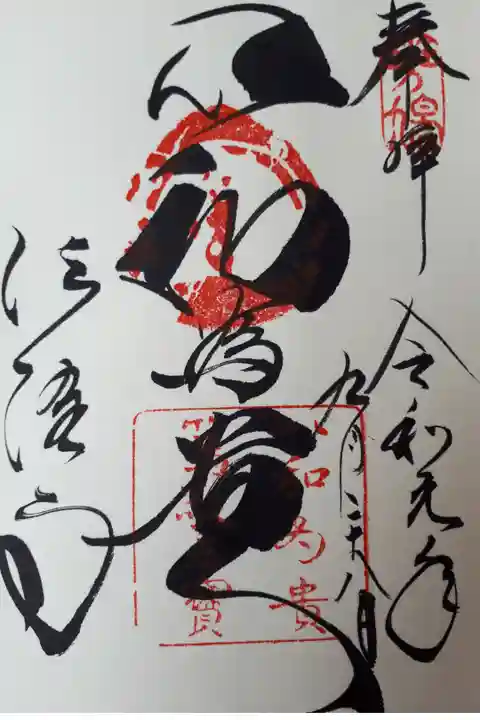 奉拝
令和元年
九月二十八日
以和為貴
以和為貴
篤敬三寶
法隆寺